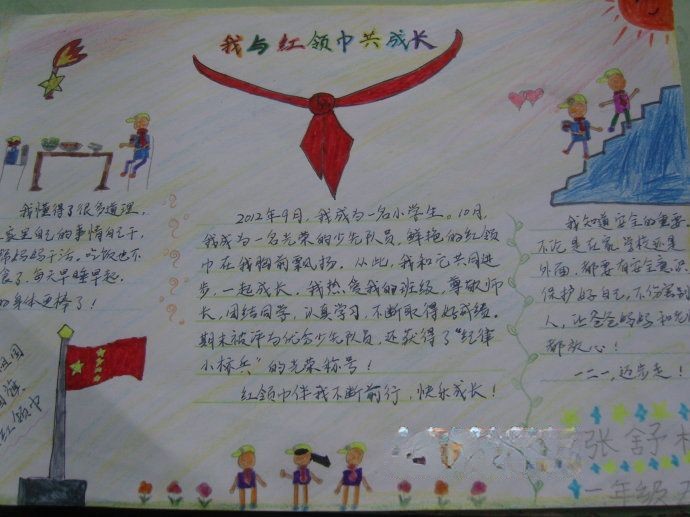 我与红领巾共成长
我懂得了很多道理,
家里自己的事情自己干,
帮妈妈干活。吃饭也不
食了。每天早睡早起,
的身体更棒了!
国旗
红领巾
2012年9月,我成为一名小学生。10月,
我成为一名光荣的少先队员,鲜艳的红领
巾在我胸前飘扬。从此,我和它共同进
步,一起成长。我热爱我的班级,尊敬师
长,团结同学,认真学习,不断取得好成绩。
期末被评为优秀少先队员,还获得了“纪律
小标兵”的光荣称号!
红领巾伴我不断前行,快乐成长!
我知道安全的重要。
不论是在家 学校还是
外面,都要有安全意识
保护好自己,不伤害别
人,让爸爸妈妈和老
都放心!
一二一,迈步走!
张舒
一年级